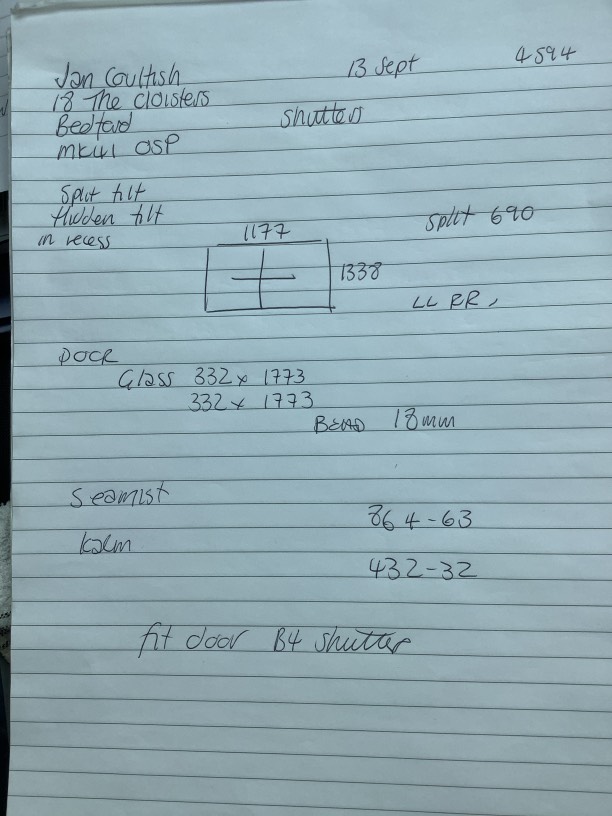 Jan Coultish 13 Sept 4594
18 The Cloisters
Bedford shutters
MK41 OSP
Split tilt
Hidden tilt split 690
in recess
1177
1338
LL RR,
DOOR
Glass 332 x 1773
332 x 1773
BEAD 18mm
Seamist
864-63
432-32
fit door B4 shutter